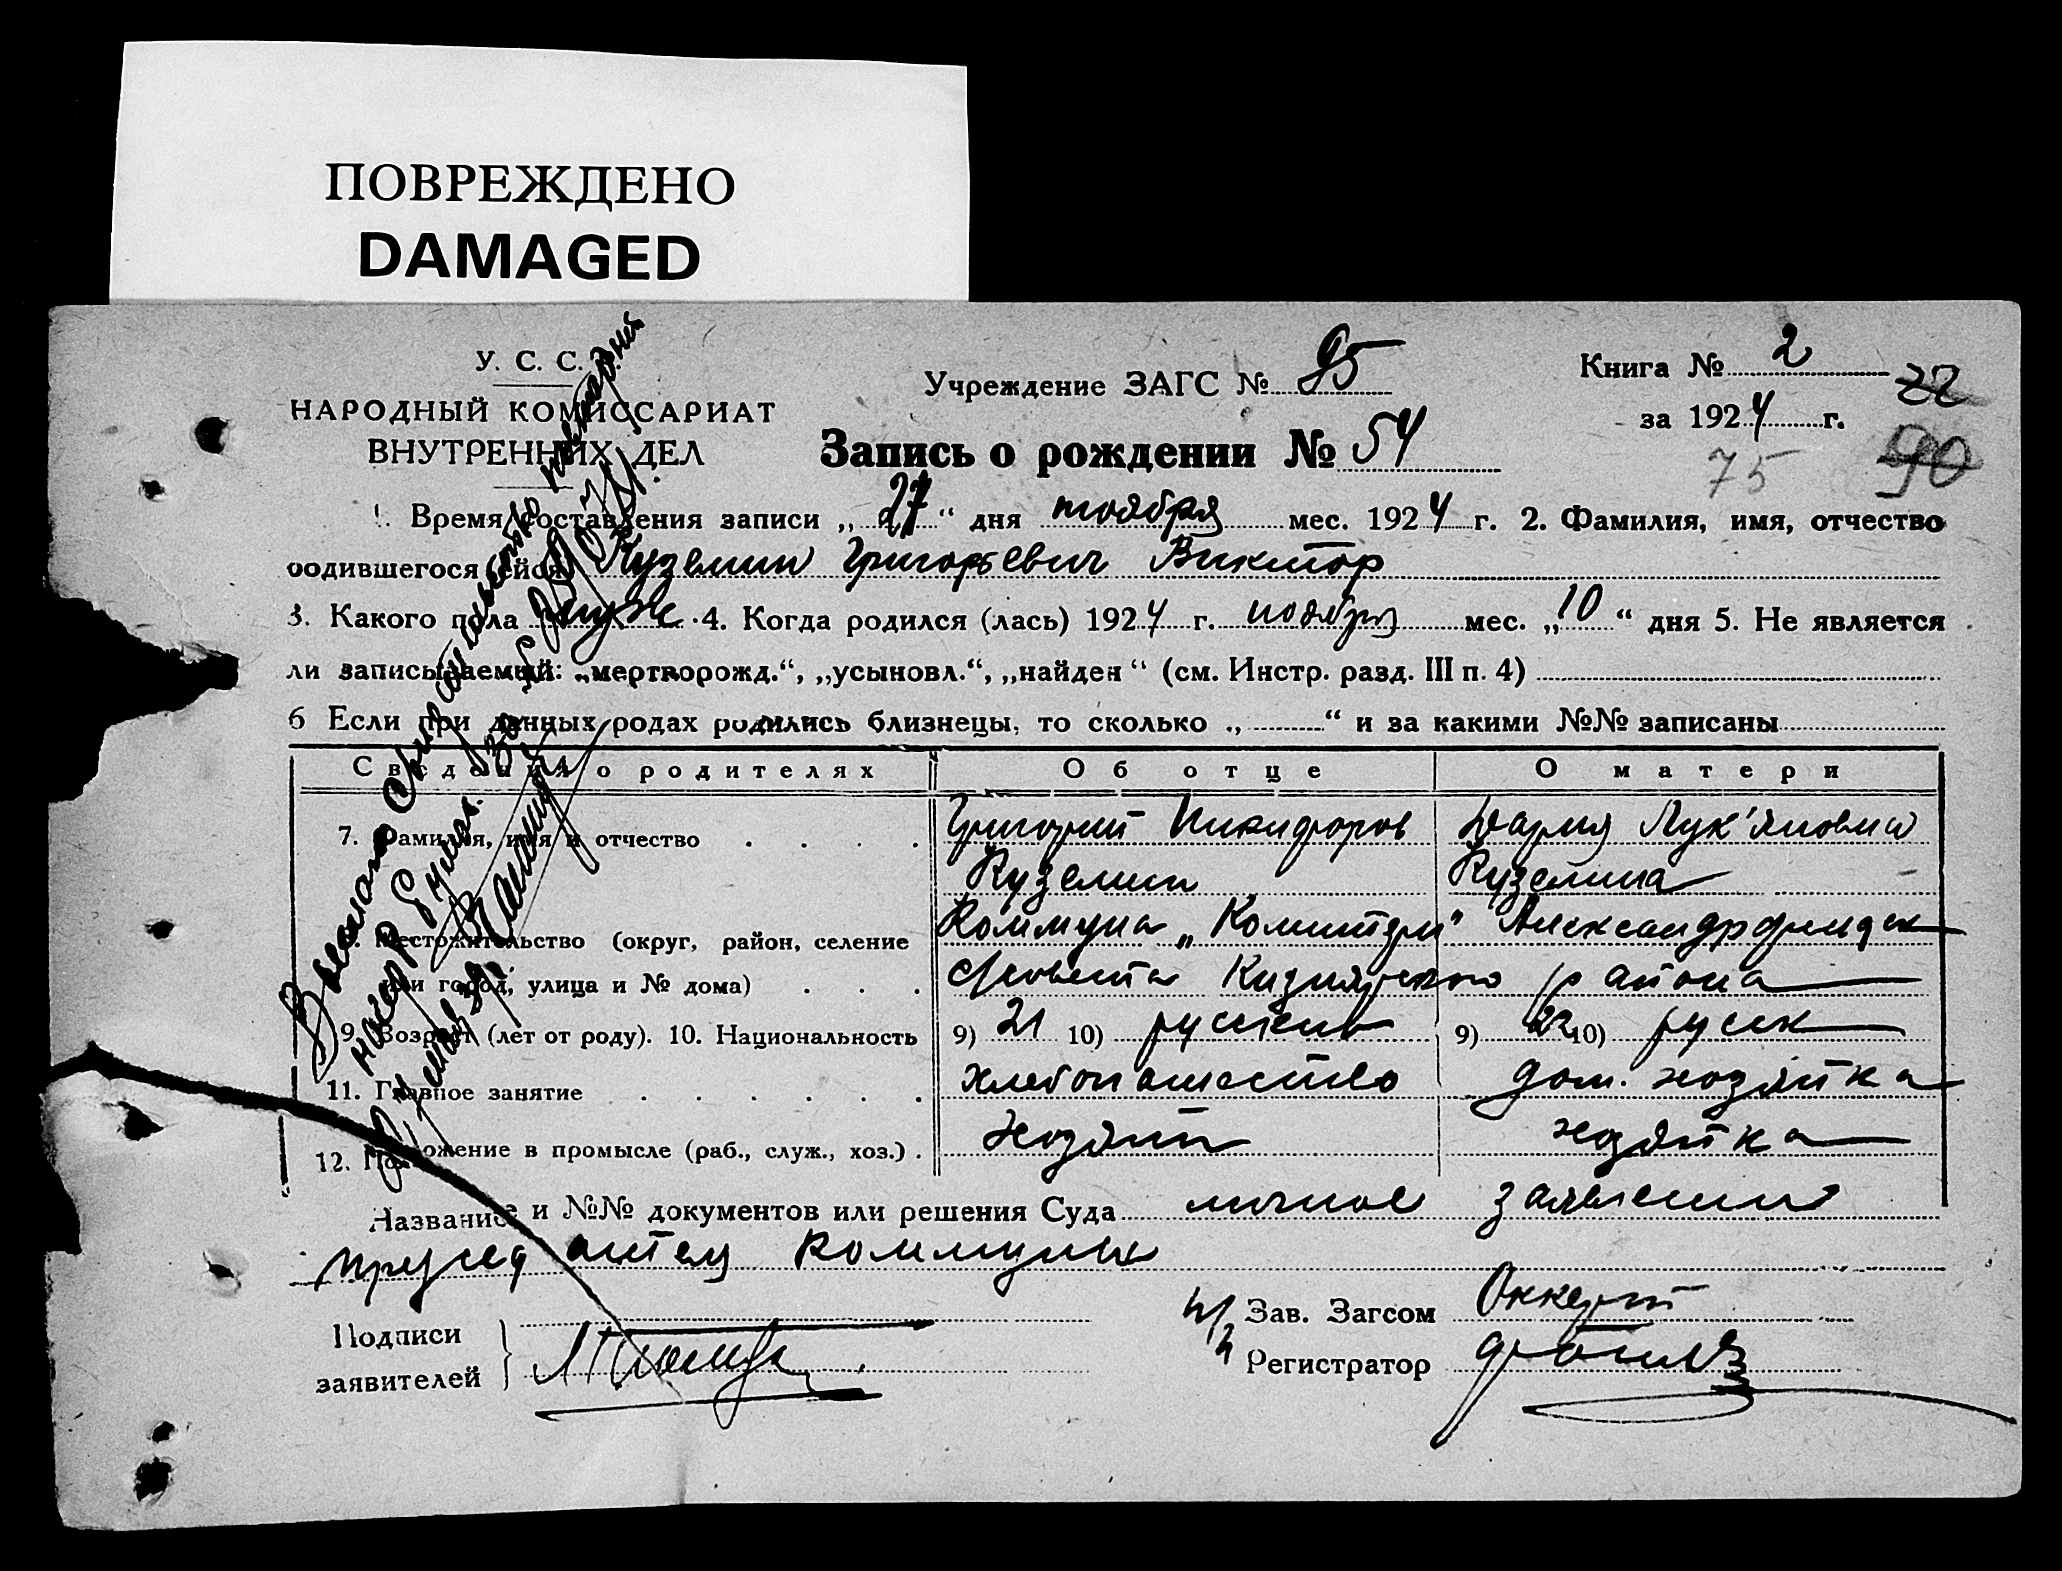 ПОВРЕЖДЕНО
DAMAGED
У. С. С.
НАРОДНЫЙ КОМИССАРИАТ
ВНУТРЕННИХ ДЕЛ
Учреждение ЗАГС № 95
Книга № 2
за 1924 г.
22
Запись о рождении № 54
75 90
1. Время составления записи „27“ дня ноября мес. 1924 г. 2. Фамилия, имя, отчество
родившегося (ейся) Куземин Григорьевич Виктор
3. Какого пола муж 4. Когда родился (лась) 1924 г. ноября мес. „10“ дня 5. Не является
ли записываемый: „мертворожд.“, „усыновл.“, „найден“ (см. Инстр. разд. III п. 4)
6 Если при данных родах родились близнецы, то сколько „ “ и за какими №№ записаны
Сведения о родителях Об отце О матери
7. Фамилия, имя и отчество Григорий Никифоров Дария Лук'яновна
Куземин Куземина
Местожительство (округ, район, селение Коммуна „Коминтерн“
или город, улица и № дома) района
9. Возраст (лет от роду). 10. Национальность 9) 21 10) русский 9) 22 10) русск
11. Главное занятие хлебопашество дом. хозяйка
12. Положение в промысле (раб., служ., хоз.) хозяин хозяйка
Название и №№ документов или решения Суда личное заявление
председателя коммуны
Подписи
заявителей
Зав. Загсом
Регистратор
Выслано свидетельство повторное